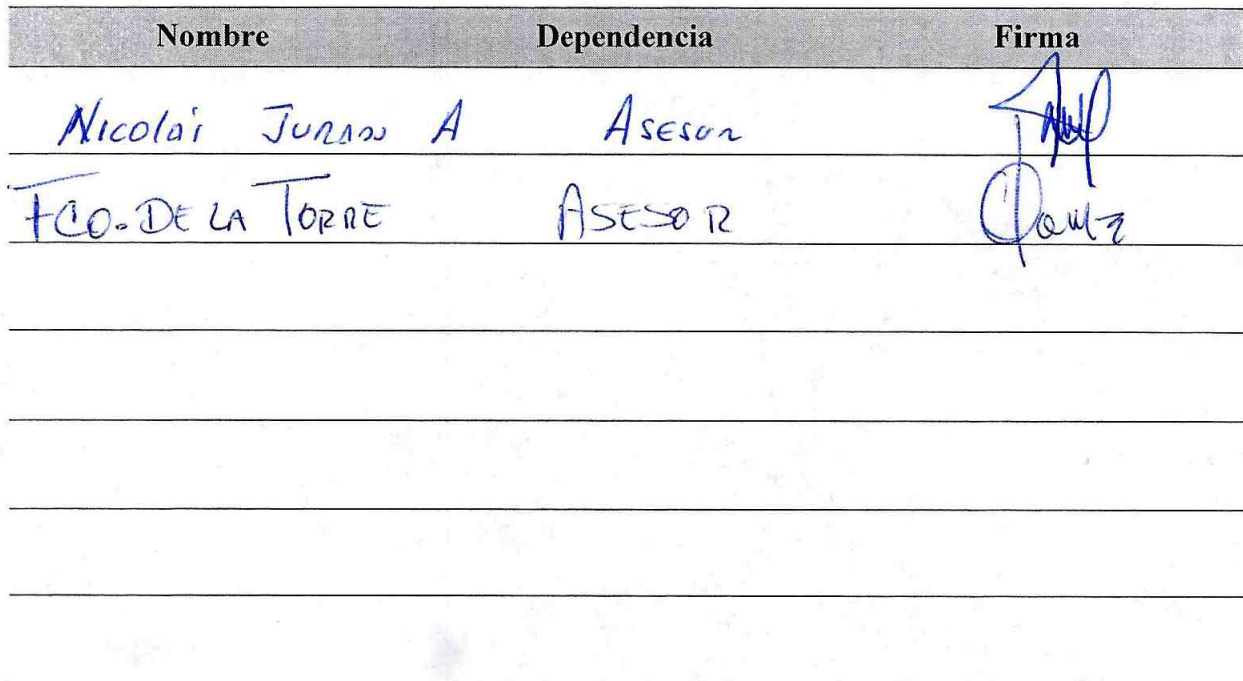 Nombre Dependencia Firma
Nicolái A Asesor
FCO. DE LA TORRE ASESOR